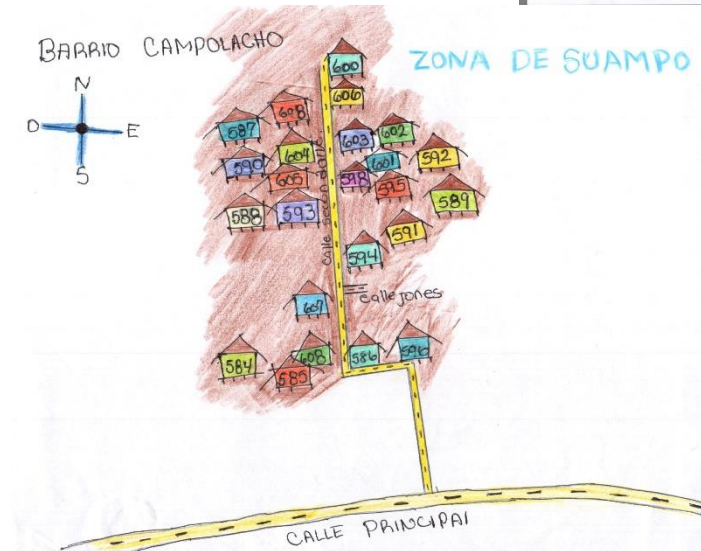 BARRIO CAMPOLACHO
ZONA DE SUAMPO
N
O
E
S
600
606
608
587
603
602
604
601
592
590
605
598
595
589
588
593
591
calle secundaria
594
607
callejones
584
608
585
586
596
CALLE PRINCIPAL